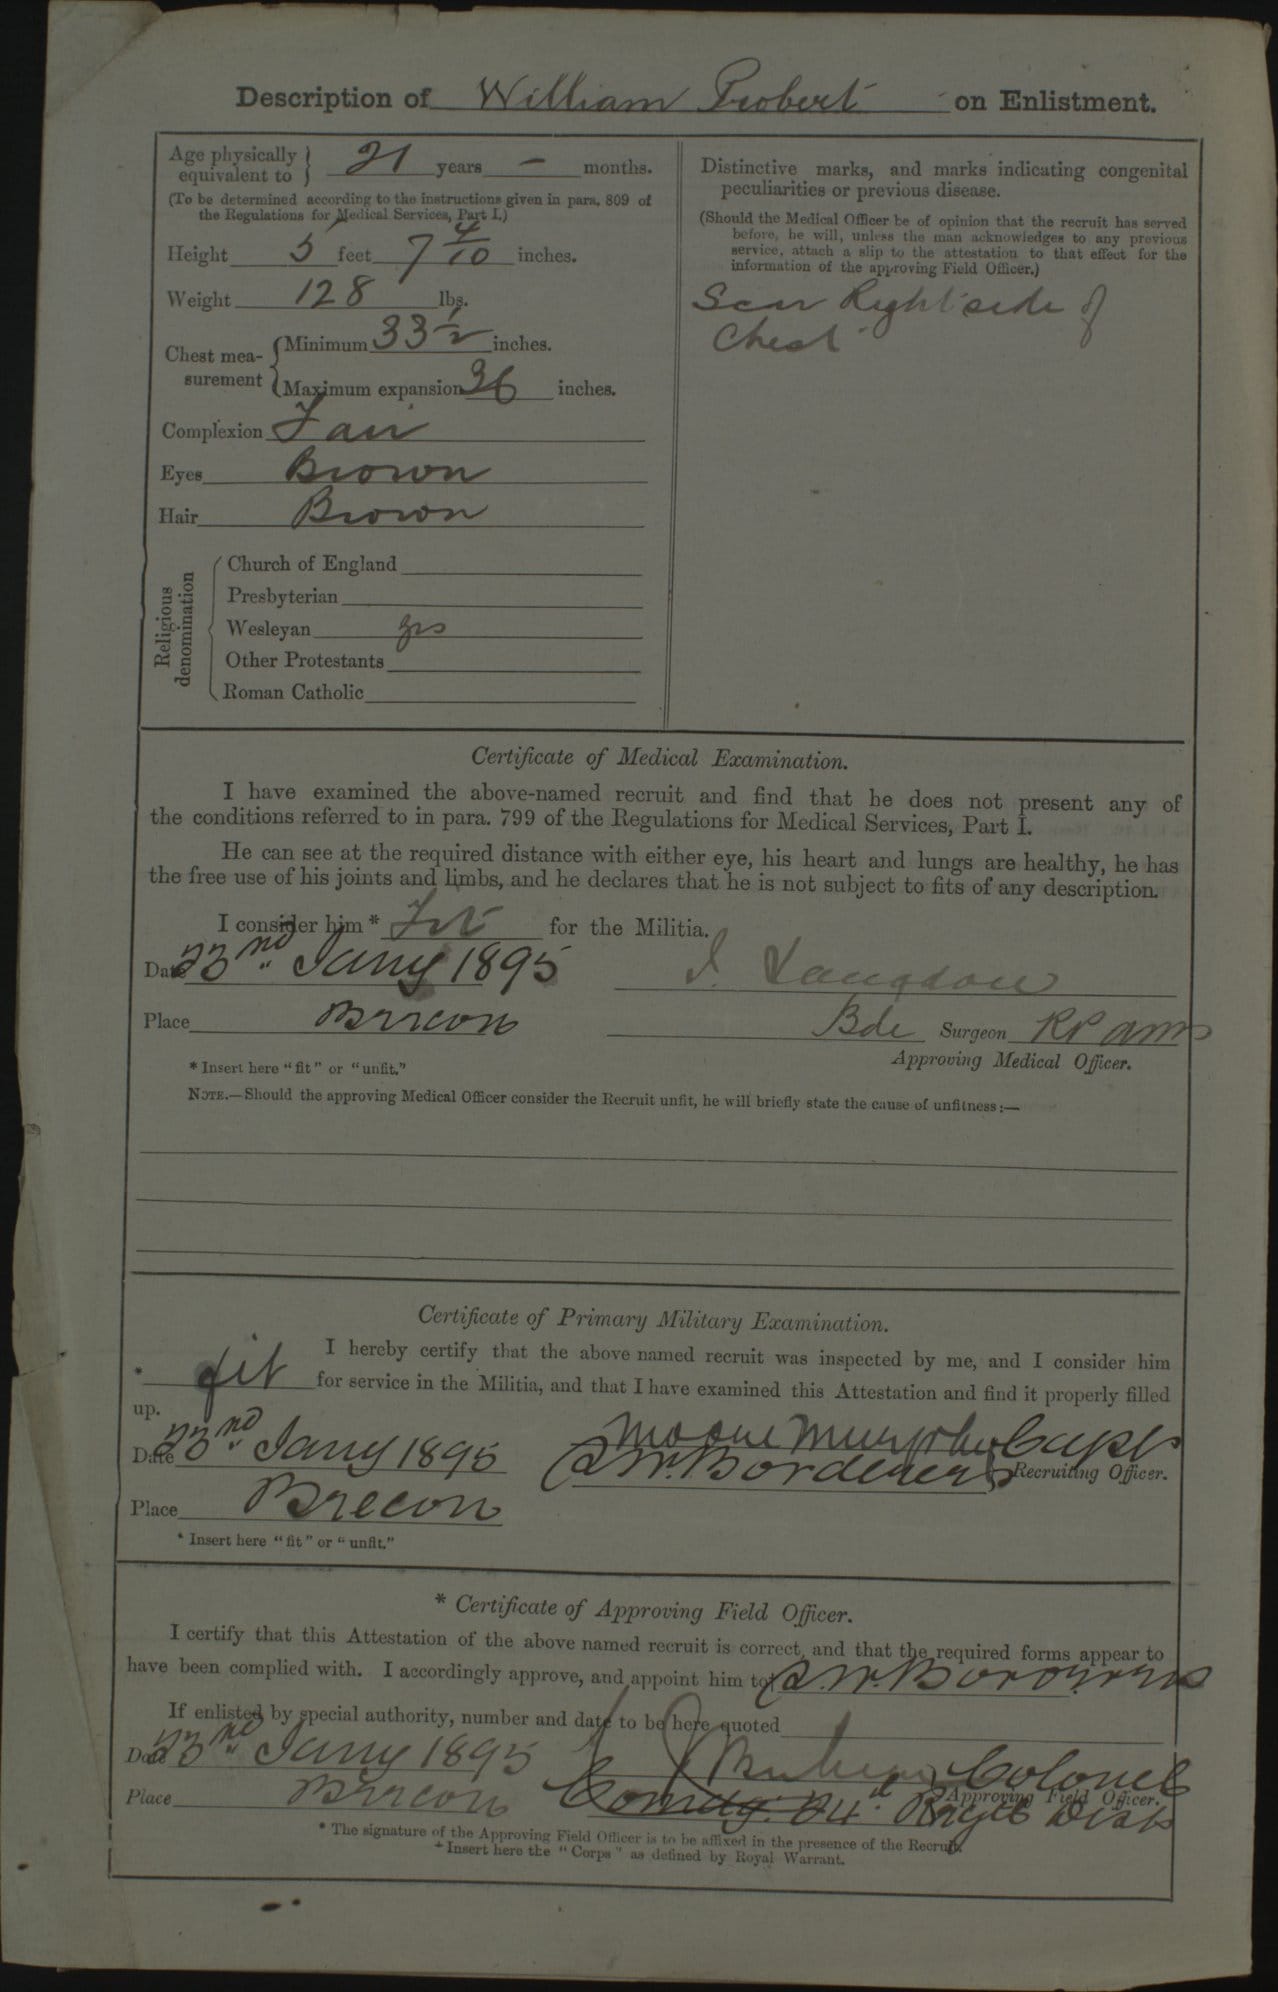 Description of William Probert on Enlistment.
Age physically equivalent to 21 years - months.
(To be determined according to the instructions given in para. 809 of
the Regulations for Medical Services, Part I.)
Height 5 feet 7 4/10 inches.
Weight 128 lbs.
Chest mea-
surement
Minimum 33 1/2 inches.
Maximum expansion 36 inches.
Complexion Fair
Eyes Brown
Hair Brown
Religious
denomination
Church of England
Presbyterian
Wesleyan yes
Other Protestants
Roman Catholic
Distinctive marks, and marks indicating congenital
peculiarities or previous disease.
(Should the Medical Officer be of opinion that the recruit has served
before, he will, unless the man acknowledges to any previous
service, attach a slip to the attestation to that effect for the
information of the approving Field Officer.)
Scar Right side of
Chest
Certificate of Medical Examination.
I have examined the above-named recruit and find that he does not present any of
the conditions referred to in para. 799 of the Regulations for Medical Services, Part I.
He can see at the required distance with either eye, his heart and lungs are healthy, he has
the free use of his joints and limbs, and he declares that he is not subject to fits of any description.
I consider him * Fit for the Militia.
Date 23nd Jany 1895
Langdon
Place Brecon
Bde Surgeon
Approving Medical Officer.
* Insert here "fit" or "unfit."
NOTE.—Should the approving Medical Officer consider the Recruit unfit, he will briefly state the cause of unfitness:—
Certificate of Primary Military Examination.
I hereby certify that the above named recruit was inspected by me, and I consider him
* fit for service in the Militia, and that I have examined this Attestation and find it properly filled
up.
Moore Murphy Capt
Date 23nd Jany 1895
S.W. Borderers Recruiting Officer.
Place Brecon
* Insert here "fit" or "unfit."
* Certificate of Approving Field Officer.
I certify that this Attestation of the above named recruit is correct, and that the required forms appear to
have been complied with. I accordingly approve, and appoint him to† S.W. Borderers
If enlisted by special authority, number and date to be here quoted
Date 23nd Jany 1895
Colonel
Approving Field Officer.
Place Brecon
Comdg. 24th Regtl Dist
* The signature of the Approving Field Officer is to be affixed in the presence of the Recruit.
† Insert here the "Corps" as defined by Royal Warrant.